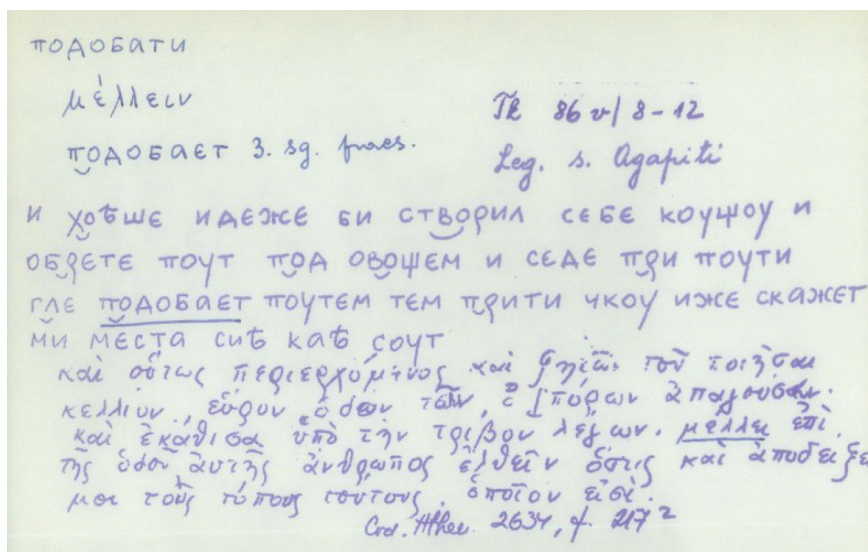 подобати
μέλλειν
подобает 3. sg. praes.
Tk 86 v/ 8-12
Leg. s. Agapiti
и хоѣше идеже би створил себе коущоу и
обрете поут под овощем и седе при поути
гле подобает поутем тем прити чкоу иже скажет
ми места сиѣ каѣ соут
καὶ οὕτως περιερχόμενος καὶ τοῦ ποιῆσαι
κελλίον, εὗρον ὁδὸν τῶν ὀπώρων ἀπαγούσαν.
καὶ ἐκάθισα ὑπὸ τὴν τρίβον λέγων. μέλλει ἐπὶ
τῆς ὁδοῦ αὐτῆς ἄνθρωπος ἐλθεῖν ὅστις καὶ ἀποδείξει
μοι τοὺς τόπους τούτους. ὁποῖον εἰσὶ.
Cod. Athen. 2634, f. 217²